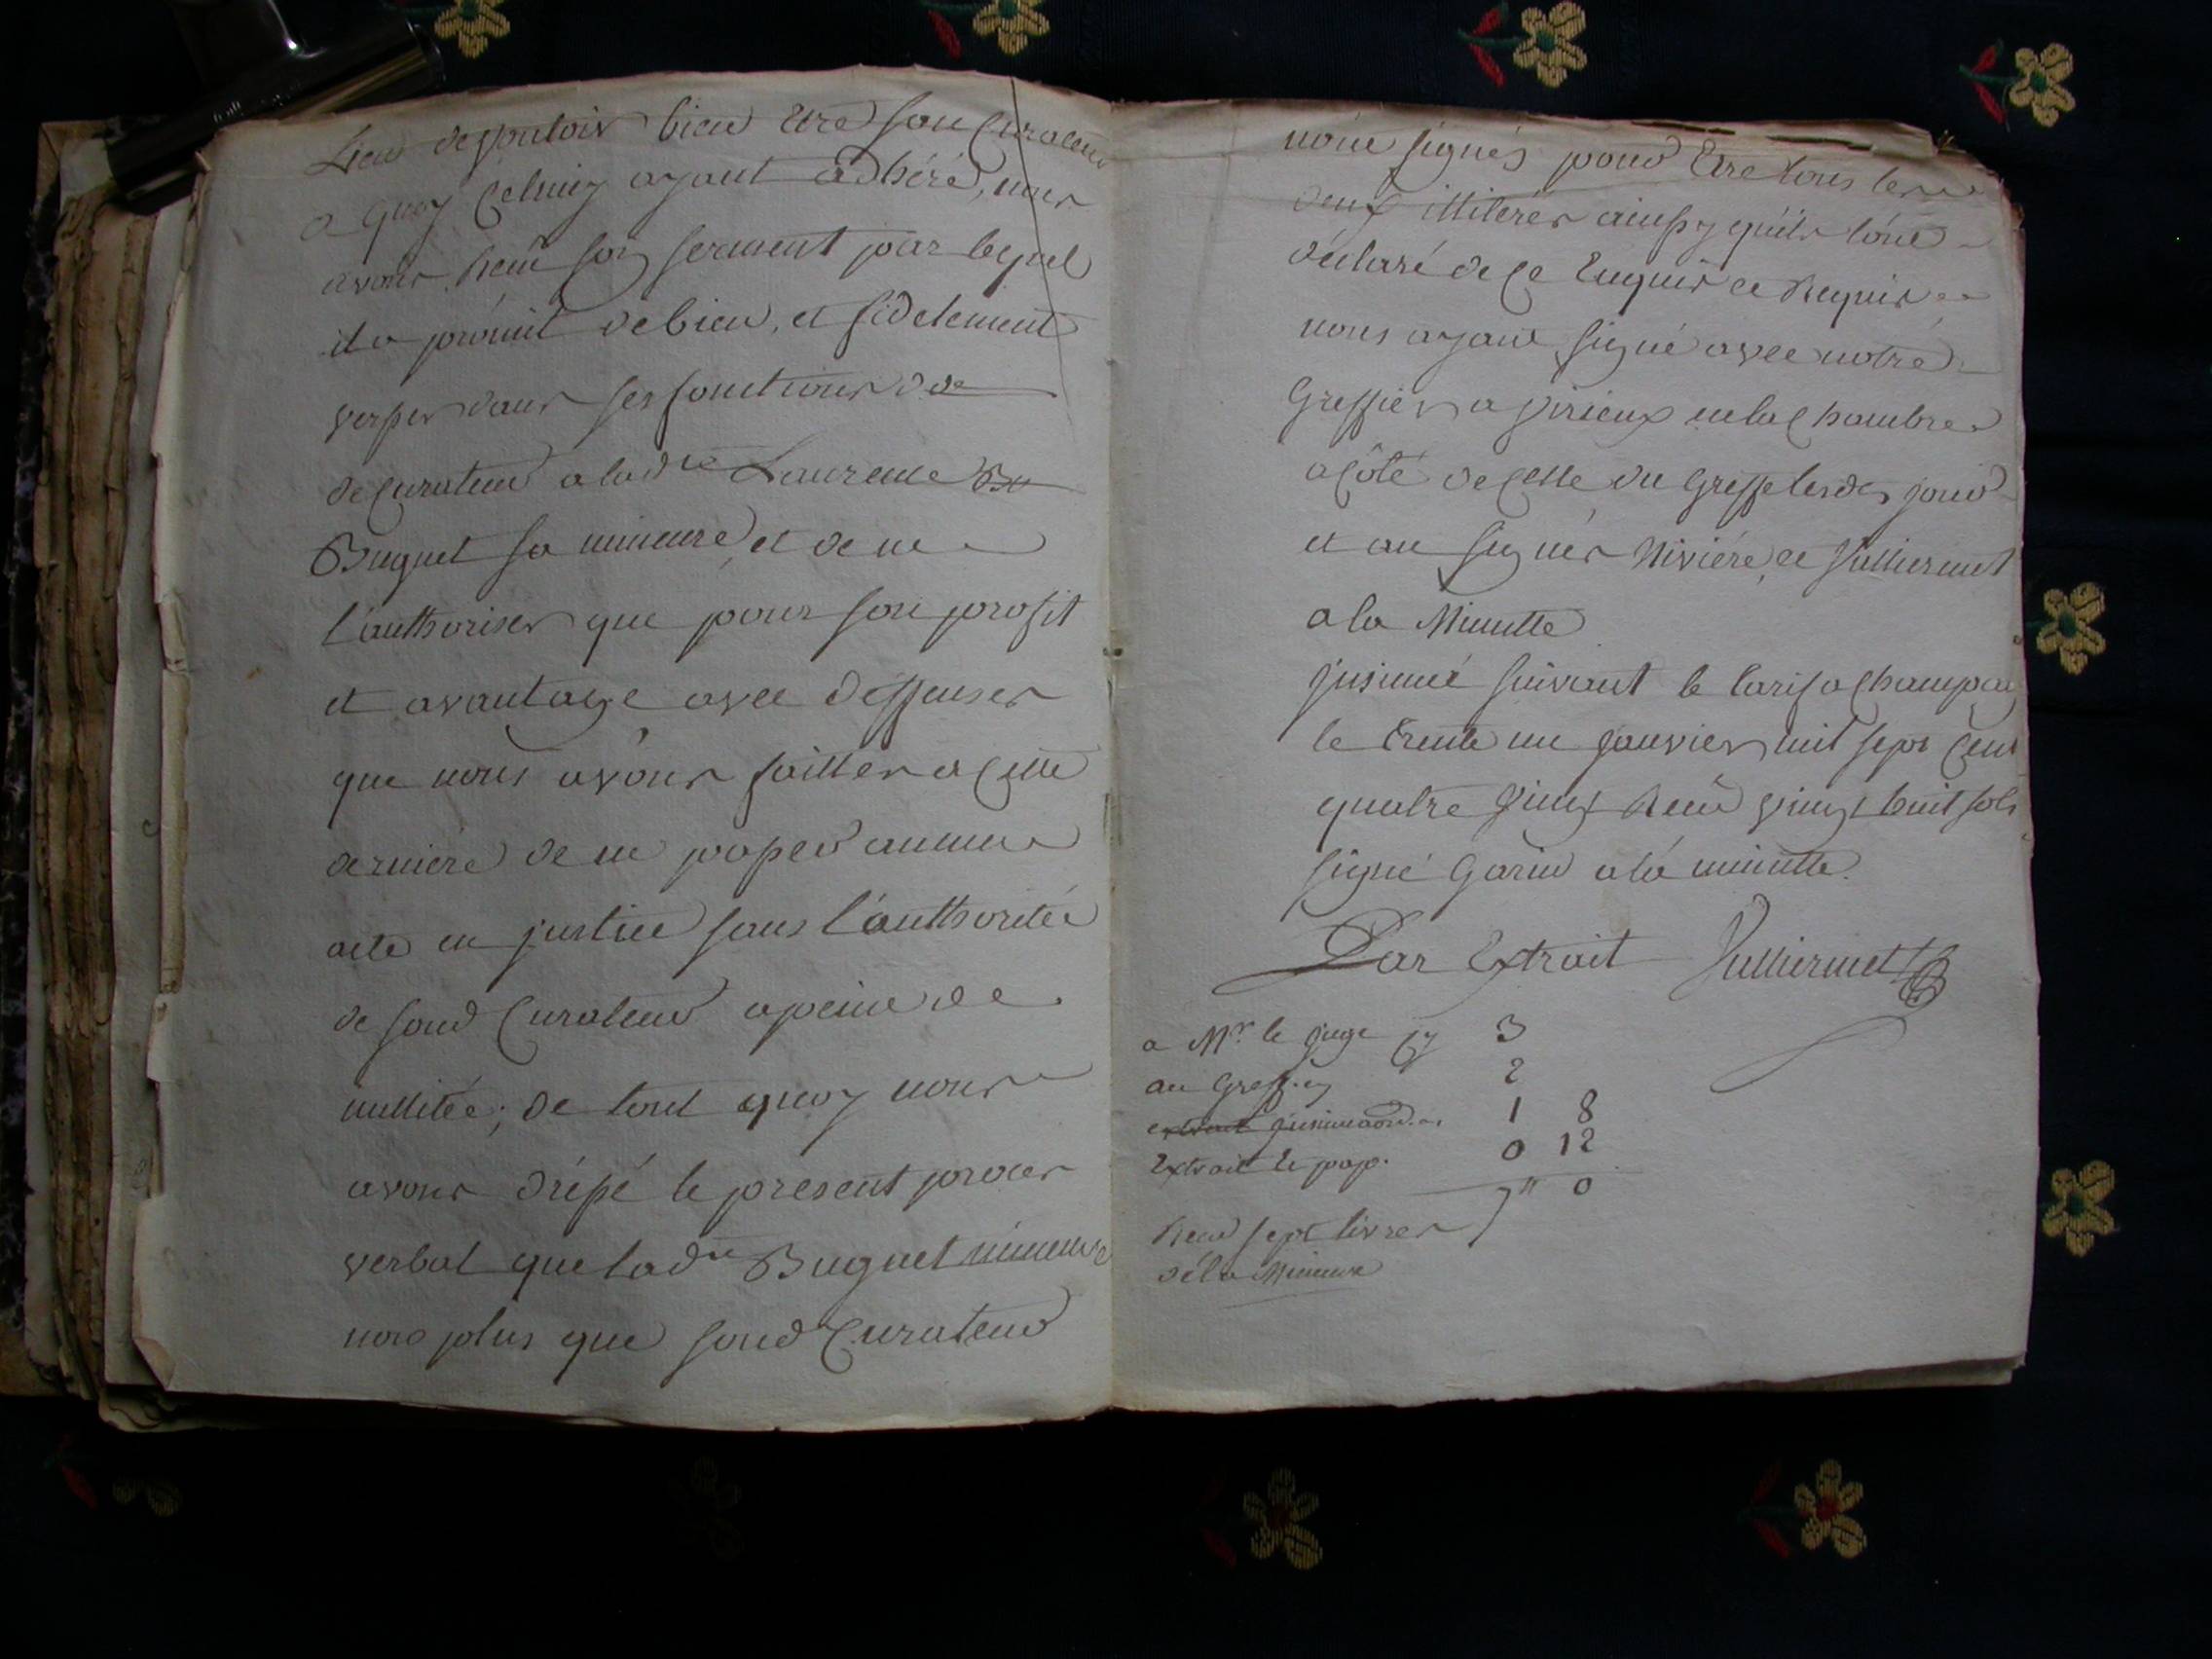 Lieu de vouloir bien etre son Curateur
a quoy Celuicy ayant adhéré, nous
avons Reçu son serment par lequel
il a promit de bien, et fidelement
verser dans ses fonctions de
de Curateur a lad.te Laurence Bu
Buguet sa mineure et de ne
l'authoriser que pour son profit
et avantage avec deffenses
que nous avons faittes a Cette
derniere de ne passer aucun
acte en justice sans l'authoritée
de soud Curateur a peine de
nullitée; de tout quoy nous
avons drésé le present proces
verbal que lad.te Buguet mineure
non plus que soud Curateur
nont signés pour Etre tous les
deux illiterés ainssy quils l'ont
déclaré de ce Enquis et Requis
nous ayant signé avec notre
Greffier a virieux en la Chambre
a Côté de Celle du Greffe lesdes jour
et an signés Riviére et Vulliermet
a la Minutte
jnsinué suivant le tarif a Champag
le trente un janvier mil sept Cent
quatre vingt Reçu vingt huit sols
signé Garin a la minutte.
Par Extrait Vulliermet
a Mr. le juge cy 3
au Greff.er 2
extrait jnsinuaon 1 8
Extrait le pap. 0 12
7" 0
Reçu sept livres
déla Mineure